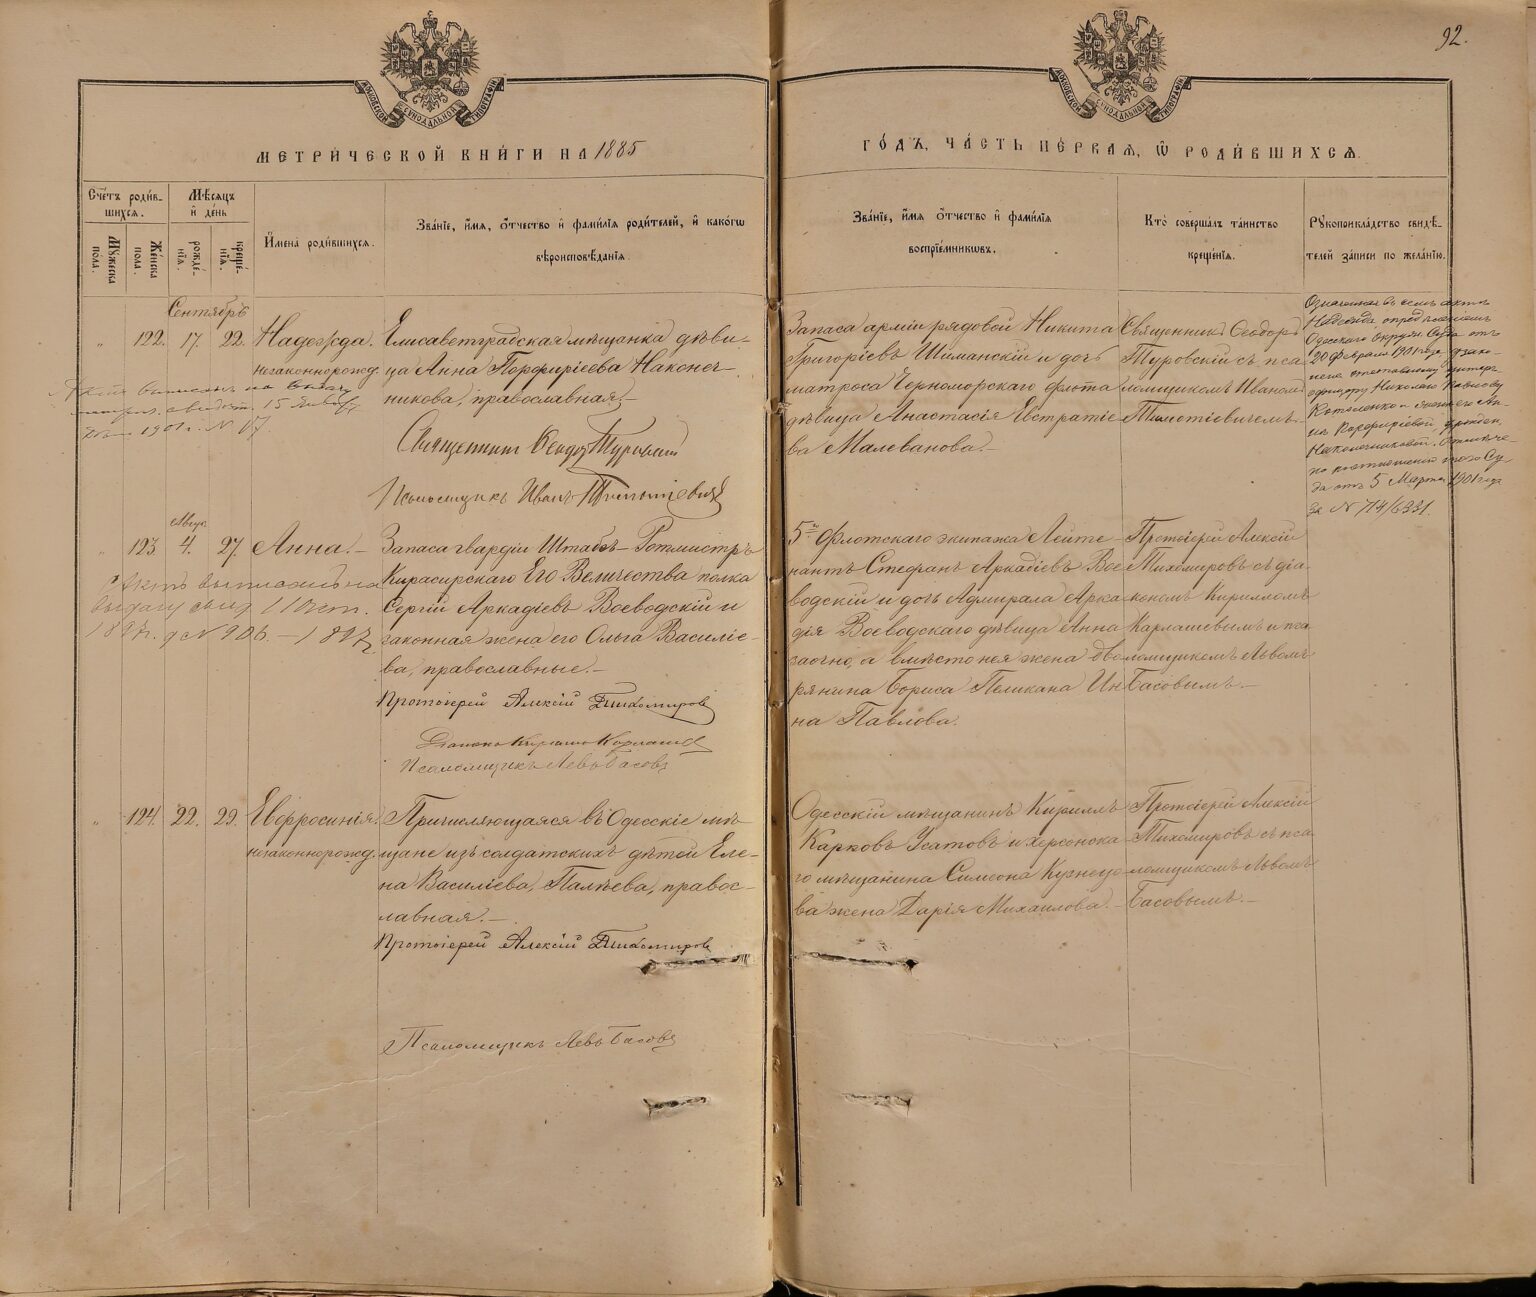 92.
МОСКОВСКОЙ СУНОДАЛЬНОЙ ТИПОГРАФІИ
МОСКОВСКОЙ СУНОДАЛЬНОЙ ТИПОГРАФІИ
МЕТРИ́ЧЕСКОЙ КНИ́ГИ НА 1885
ГО́ДЪ, ЧА́СТЬ ПЕ́РВАЯ, Ѿ РОДИ́ВШИХСЯ.
Сче́тъ роди́в-
шихся.
Му́жеска
по́ла.
Же́нска
по́ла.
Мѣ́сяцъ
и҆ де́нь
рожде́-
нїя.
креще́-
нїя.
И҆мена̀ роди́вшихся.
Зва́нїе, и҆́мя, ѻ҆́тчество и҆ фами́лїя роди́телей, и҆ како́гѡ
вѣроисповѣ́данїя.
Зва́нїе, и҆́мя ѻ҆́тчество и҆ фами́лїя
воспрїе́мникѡвъ.
Кто̀ соверша́лъ та́инство
креще́нїя.
Рꙋкоприкла́дство свидѣ́-
телей за́писи по жела́нїю.
Сентябрь
" 122. 17. 22. Надежда.
незаконнорожд.
Елисаветградская мѣщанка дѣви-
ца Анна Порфиріева Наконеч-
никова, православная.-
Священникъ Ѳеодоръ Туровскій
Псаломщикъ Иванъ Тимотіевичъ
15 Января
1901 г. № 17.
Запаса арміи рядовой Никита
Григоріевъ Шиманскій и дочь
матроса Черноморскаго флота
дѣвица Анастасія Евстратіе-
ва Малеванова.-
Священникъ Ѳеодоръ
Туровскій съ пса-
ломщикомъ Иваномъ
Тимотіевичемъ.-
Означенная въ семъ актѣ
Надежда опредѣленіемъ
Одесскаго Окружн. Суда отъ
20 Февраля 1901 года узако-
нена
Николаю Павлову
Котяленко и женѣ его Ан-
нѣ Порфиріевой, урожден.
Наконечниковой.
да отъ 5 Марта 1901 года
за № 714/6331.
Авгус.
" 123 4. 27. Анна.-
Запаса гвардіи Штабъ-Ротмистръ
Кирасирскаго Его Величества полка
Сергій Аркадіевъ Воеводскій и
законная жена его Ольга Василіе-
ва, православные.-
Протоіерей Алексій Тихомировъ
Діаконъ Кириллъ Карлашевъ
Псаломщикъ Левъ Басовъ
выдачу свид. 11 Окт.
1897г. № 906.-1897г.
5го Флотскаго экипажа Лейте-
нантъ Стефанъ Аркадіевъ Вое-
водскій и дочь Адмирала Арка-
дія Воеводскаго дѣвица Анна
заочно, а вмѣсто нея жена дво-
рянина Бориса Пеликана Ин-
на Павлова.
Протоіерей Алексій
Тихомировъ съ діа-
кономъ Кирилломъ
Карлашевымъ и пса-
ломщикомъ Львомъ
Басовымъ.-
" 124. 22. 29. Евфросинія.
незаконнорожд.
Причисляющаяся въ Одесскіе мѣ-
щане изъ солдатскихъ дѣтей Еле-
на Василіева, Палѣева, правос-
лавная.-
Протоіерей Алексій Тихомировъ
Псаломщикъ Левъ Басовъ
Одесскій мѣщанинъ Кириллъ
Карповъ Усатовъ и херсонска-
го мѣщанина Симеона Кузнецо-
ва жена Дарія Михаилова.-
Протоіерей Алексій
Тихомировъ съ пса-
ломщикомъ Львомъ
Басовымъ.-